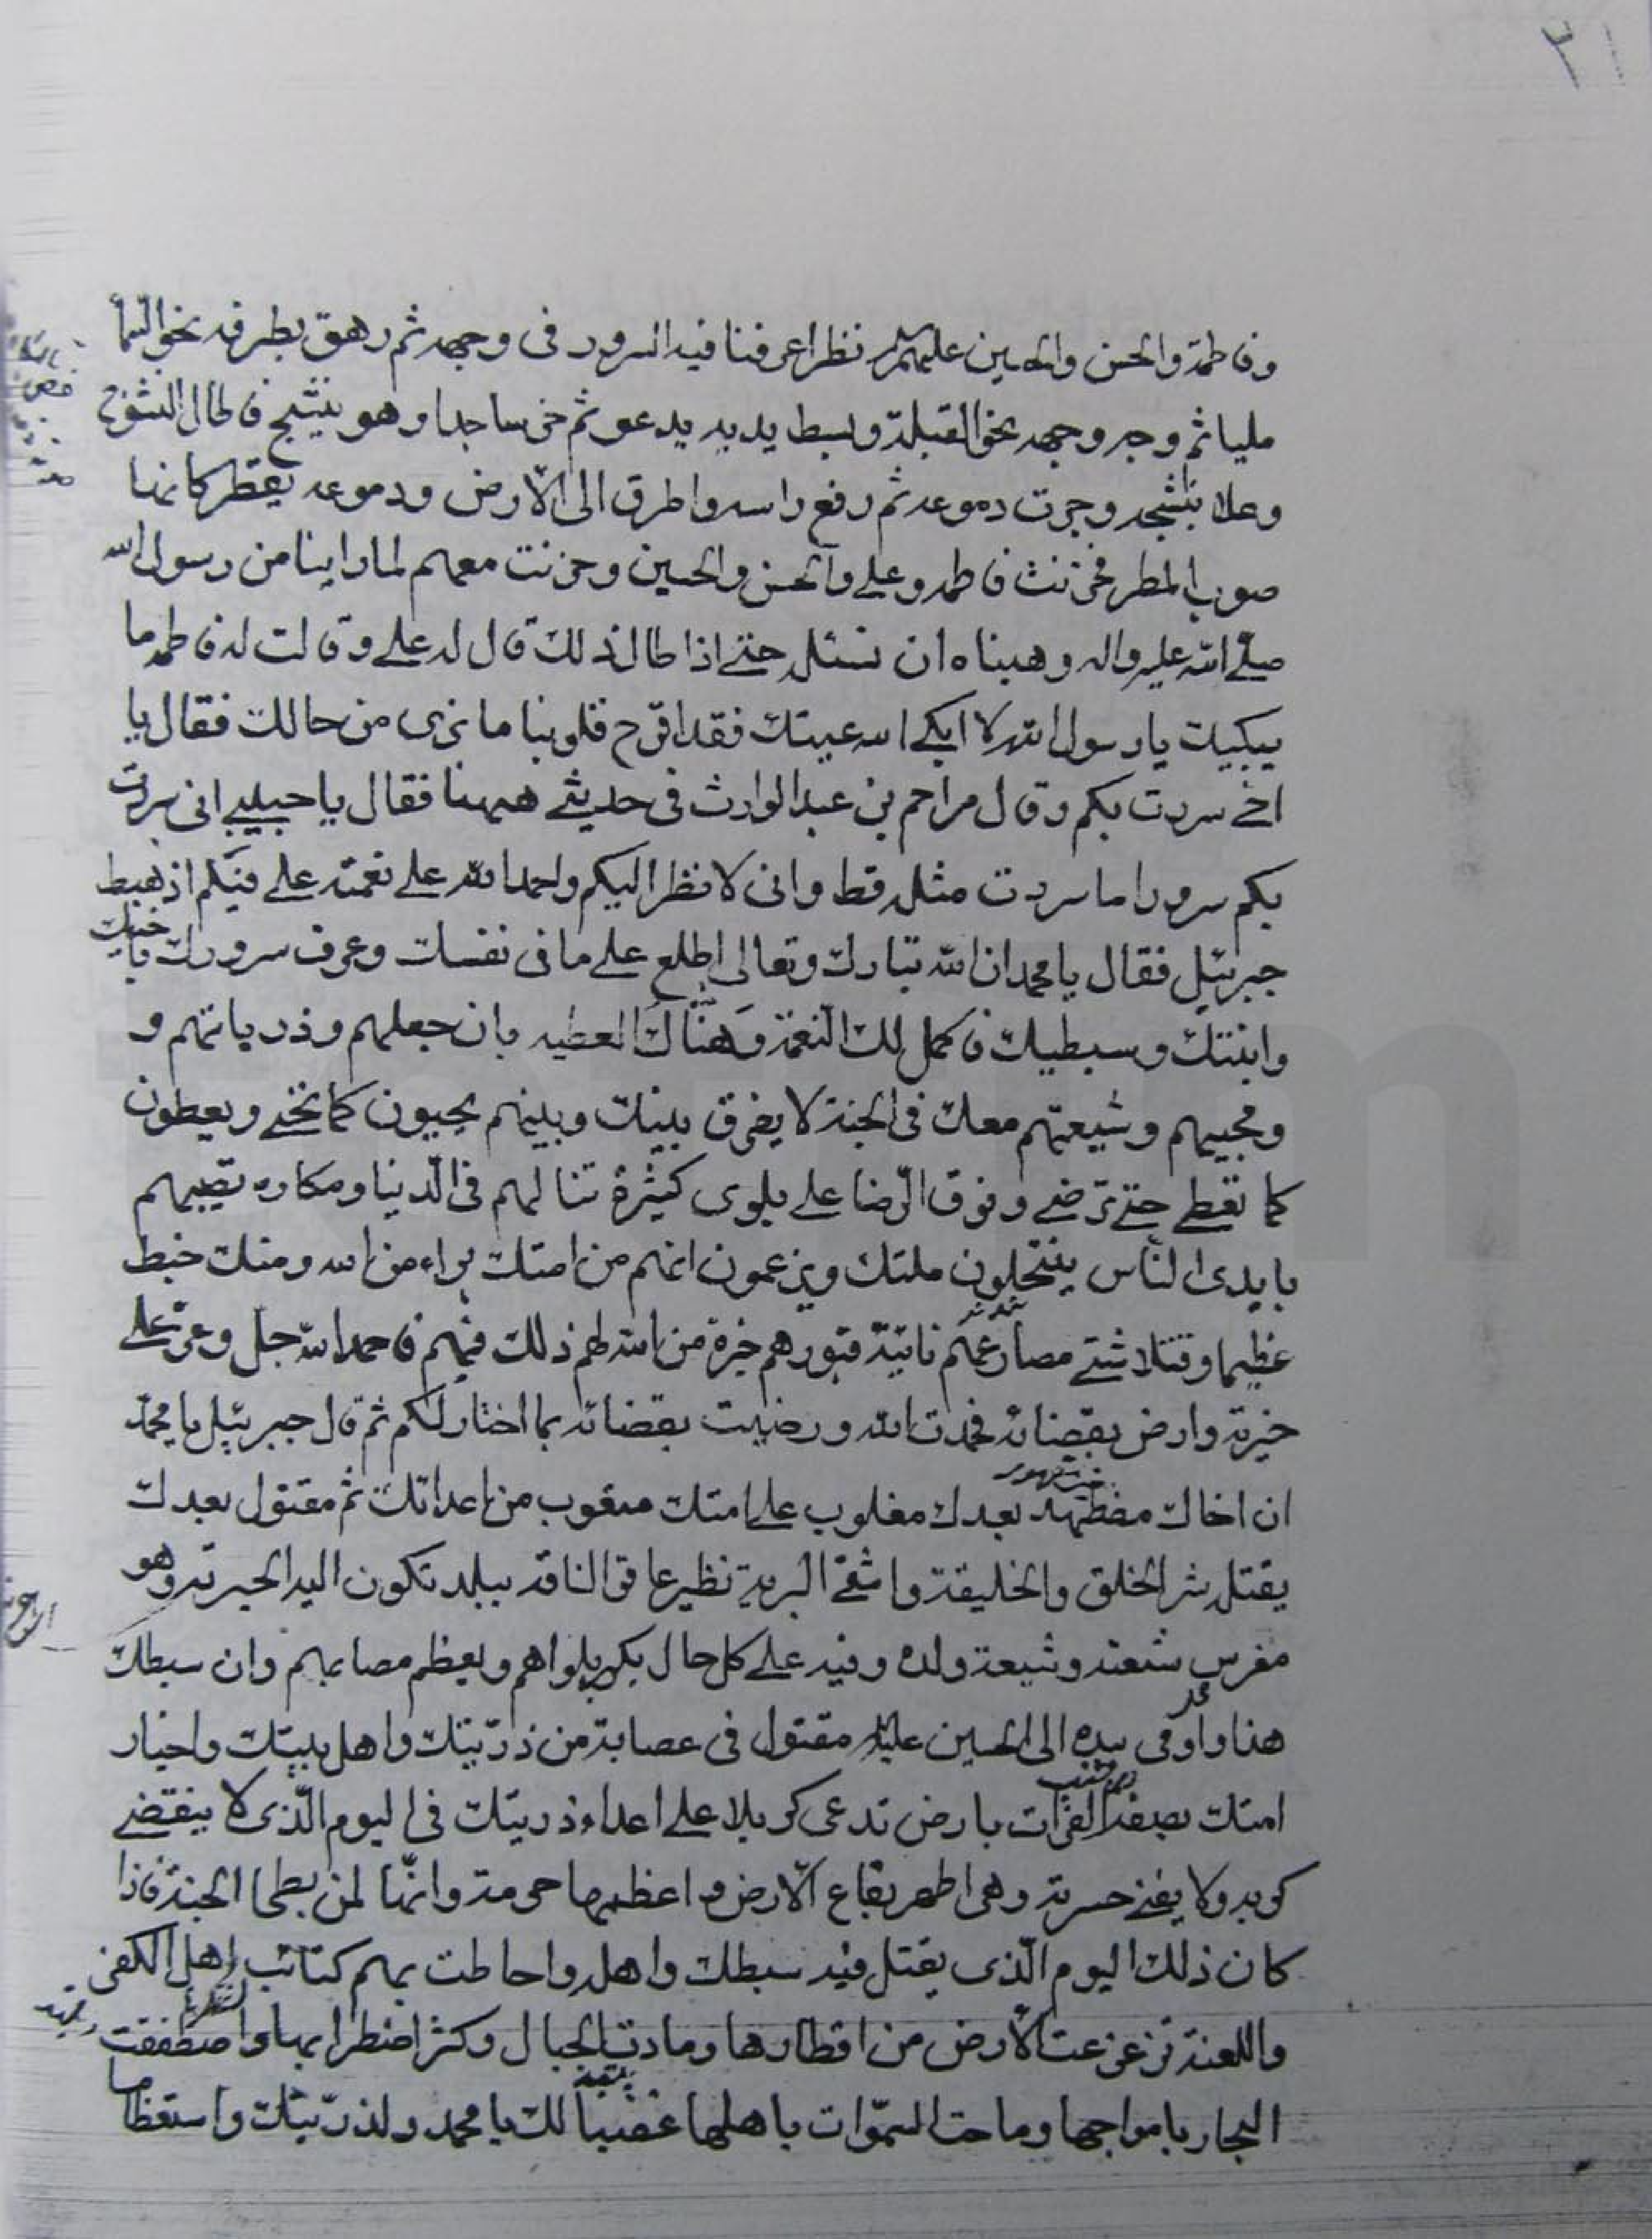 ٢١
وفاطمة والحسن والحسين عليهم نظرا عرفنا فيه السرور فى وجهه ثم رمق بطرفه نحو السمآء
مليا ثم وجه وجهه نحو القبلة وبسط يديه يدعو ثم خر ساجدا وهو ينشج فاطال النشوج
وعلا بنشجه وجرت دموعه ثم رفع راسه واطرق الى الارض ودموعه يقطر كانها
صوب المطر فحزنت فاطمه وعلى والحسن والحسين وحزنت معهم لما راينا من رسول الله
صلى الله عليه واله وهبناه ان نسئله حتى اذا طال ذلك قال له على وقالت له فاطمه ما
يبكيك يا رسول الله لا ابكى الله عينيك فقد اقرح قلوبنا ما نرى من حالك فقال يا
اخى سررت بكم وقال مزاحم بن عبد الوارث فى حديثى ههنا فقال يا حبيبى انى سررت
بكم سرورا ما سررت مثله قط وانى لانظر اليكم واحمد الله على نعمته على فيكم اذ هبط
جبرئيل فقال يا محمد ان الله تبارك وتعالى اطلع على ما فى نفسك وعرف سرورك باخيك
وابنتك وسبطيك فاكمل لك النعمة وهنّاك العطيه بان جعلهم وذرياتهم و
ومحبيهم وشيعتهم معك فى الجنة لا يفرق بينك وبينهم يحيون كما تحى ويعطون
كما تعطى حتى ترضى وفوق الرّضا على بلوى كثيرة تنالهم فى الدّنيا ومكاره تصيبهم
بايدى الناس ينتحلون ملتك ويزعمون انهم من امتك براء من الله ومنك خبط
عظيما وقتلا شتى مصارعهم نائية قبورهم خيرة من الله لهم ذلك فيهم فاحمد الله جل وعز على
خيرته وارض بقضائه فحمدت الله ورضيت بقضائه بما اختار لكم ثم قال جبرئيل يا محمد
ان اخاك مضطهد بعدك مغلوب على امتك متعوب من اعدائك ثم مقتول بعدك
يقتله شر الخلق والخليقة واشقى البرية نظير عاقر الناقه ببلد تكون اليه الهجرته وهو
مغرس شيعته وشيعة ولده وفيه على كل حال يكثر بلواهم ويعظم مصابهم وان سبطك
هذا واومى بيده الى الحسين عليه مقتول فى عصابة من ذرّيتك واهل بيتك واخيار
امتك بضفة الفرات بارض تدعى كربلا على اعداء ذريتك فى اليوم الّذى لا ينقضى
كربه ولا يفنى حسرته وهى اطهر بقاع الارض واعظمها حرمة وانّها لمن بطحا الجنة فاذا
كان ذلك اليوم الّذى يقتل فيه سبطك واهله واحاطت بهم كتائب اهل الكفر
واللعنة تزعزعت الأرض من اقطارها ومادت الجبال وكثر اضطرابها واصطفقت
البحار بامواجها وماجت السموات باهلها غضبا لك يا محمد ولذرّيتك واستعظاما